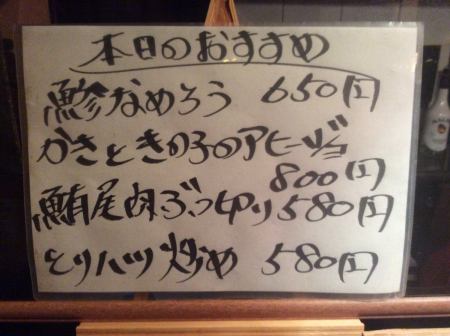 本日のおすすめ
鯵なめろう 650円
かきときの子のアヒージョ
800円
鮪尾肉ぶつ切り580円
とりハツ炒め 580円